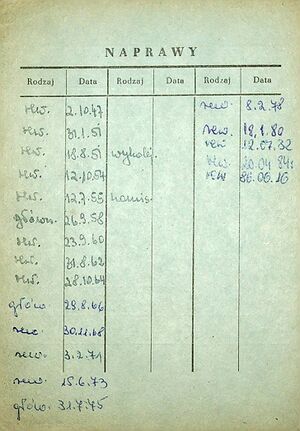 NAPRAWY
Rodzaj Data Rodzaj Data Rodzaj Data
rew. 2.10.47 rew. 8.2.78
rew. 31.1.51 rew. 18.1.80
rew. 18.8.51 rew 12.07.82
rew. 12.10.54 rew. 20.04 84r.
rew. 12.7.55 86.06.16
główn. 26.9.58
rew. 23.9.60
rew. 31.8.62
rew. 28.10.64
główn. 29.8.66
rew 30.11.68
rew. 3.2.71
rew. 15.6.73
główn. 31.7.75